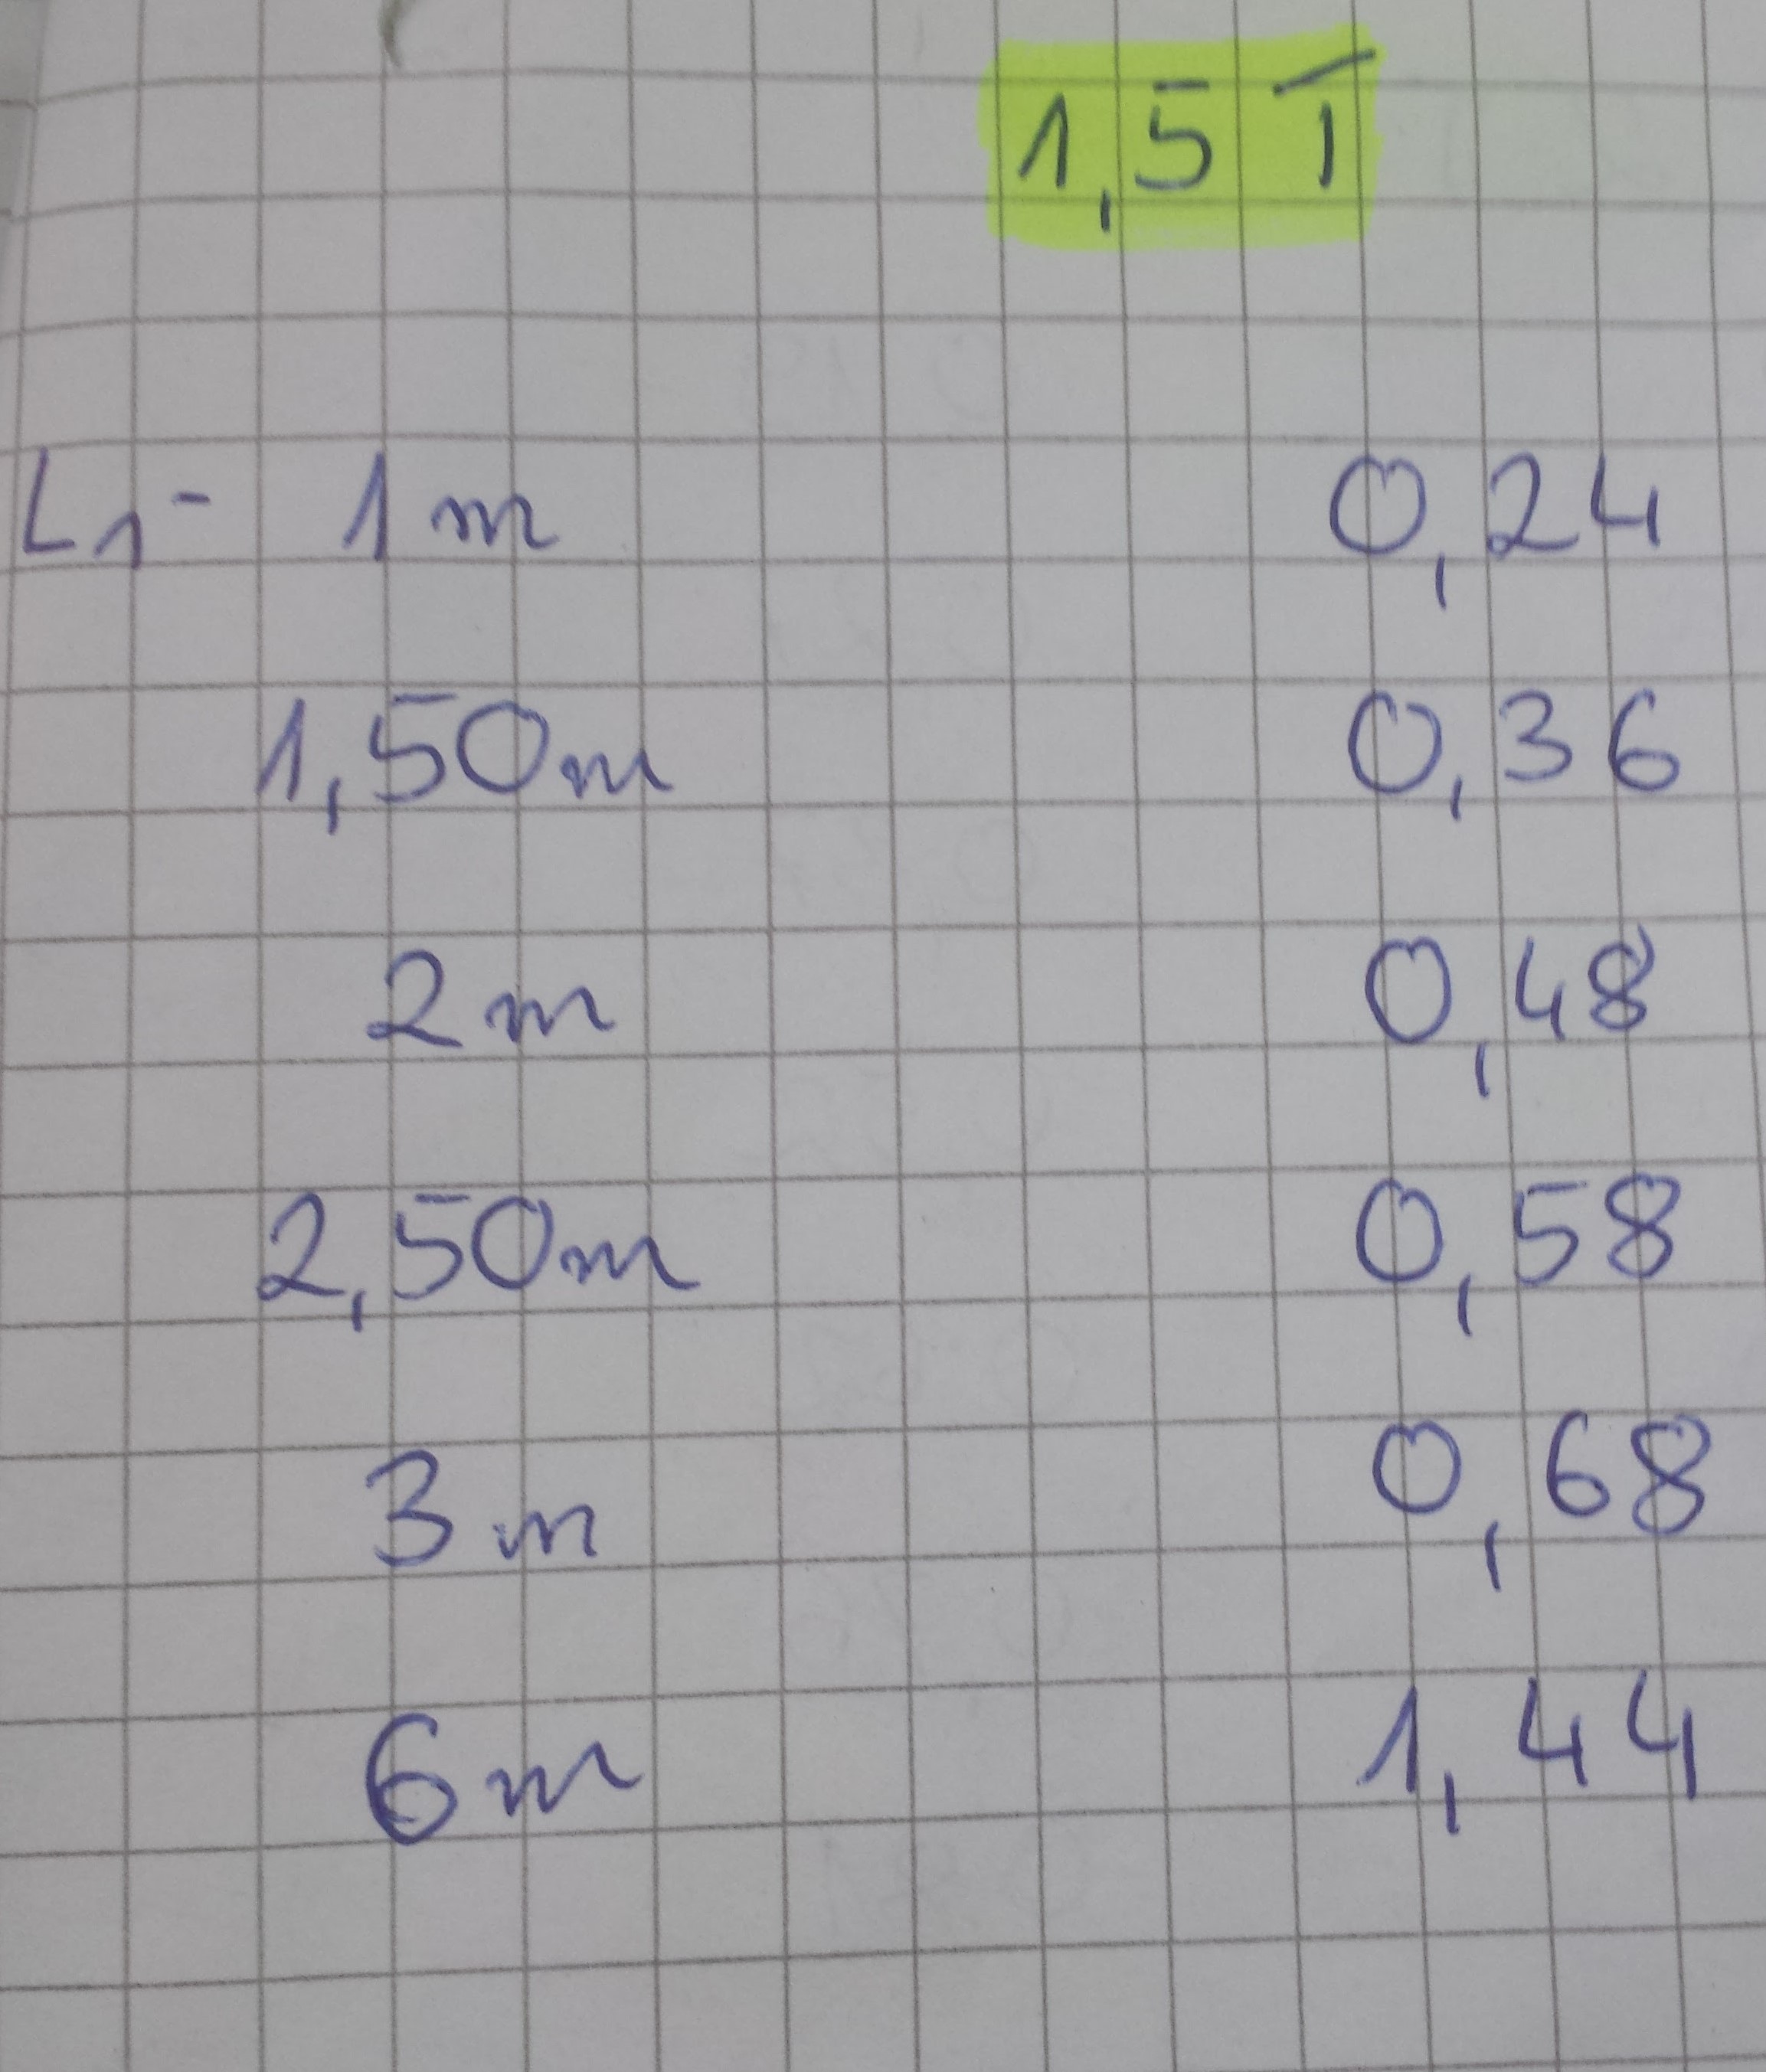 1,5 T
L1- 1 m 0,24
1,50m 0,36
2 m 0,48
2,50m 0,58
3 m 0,68
6 m 1,44